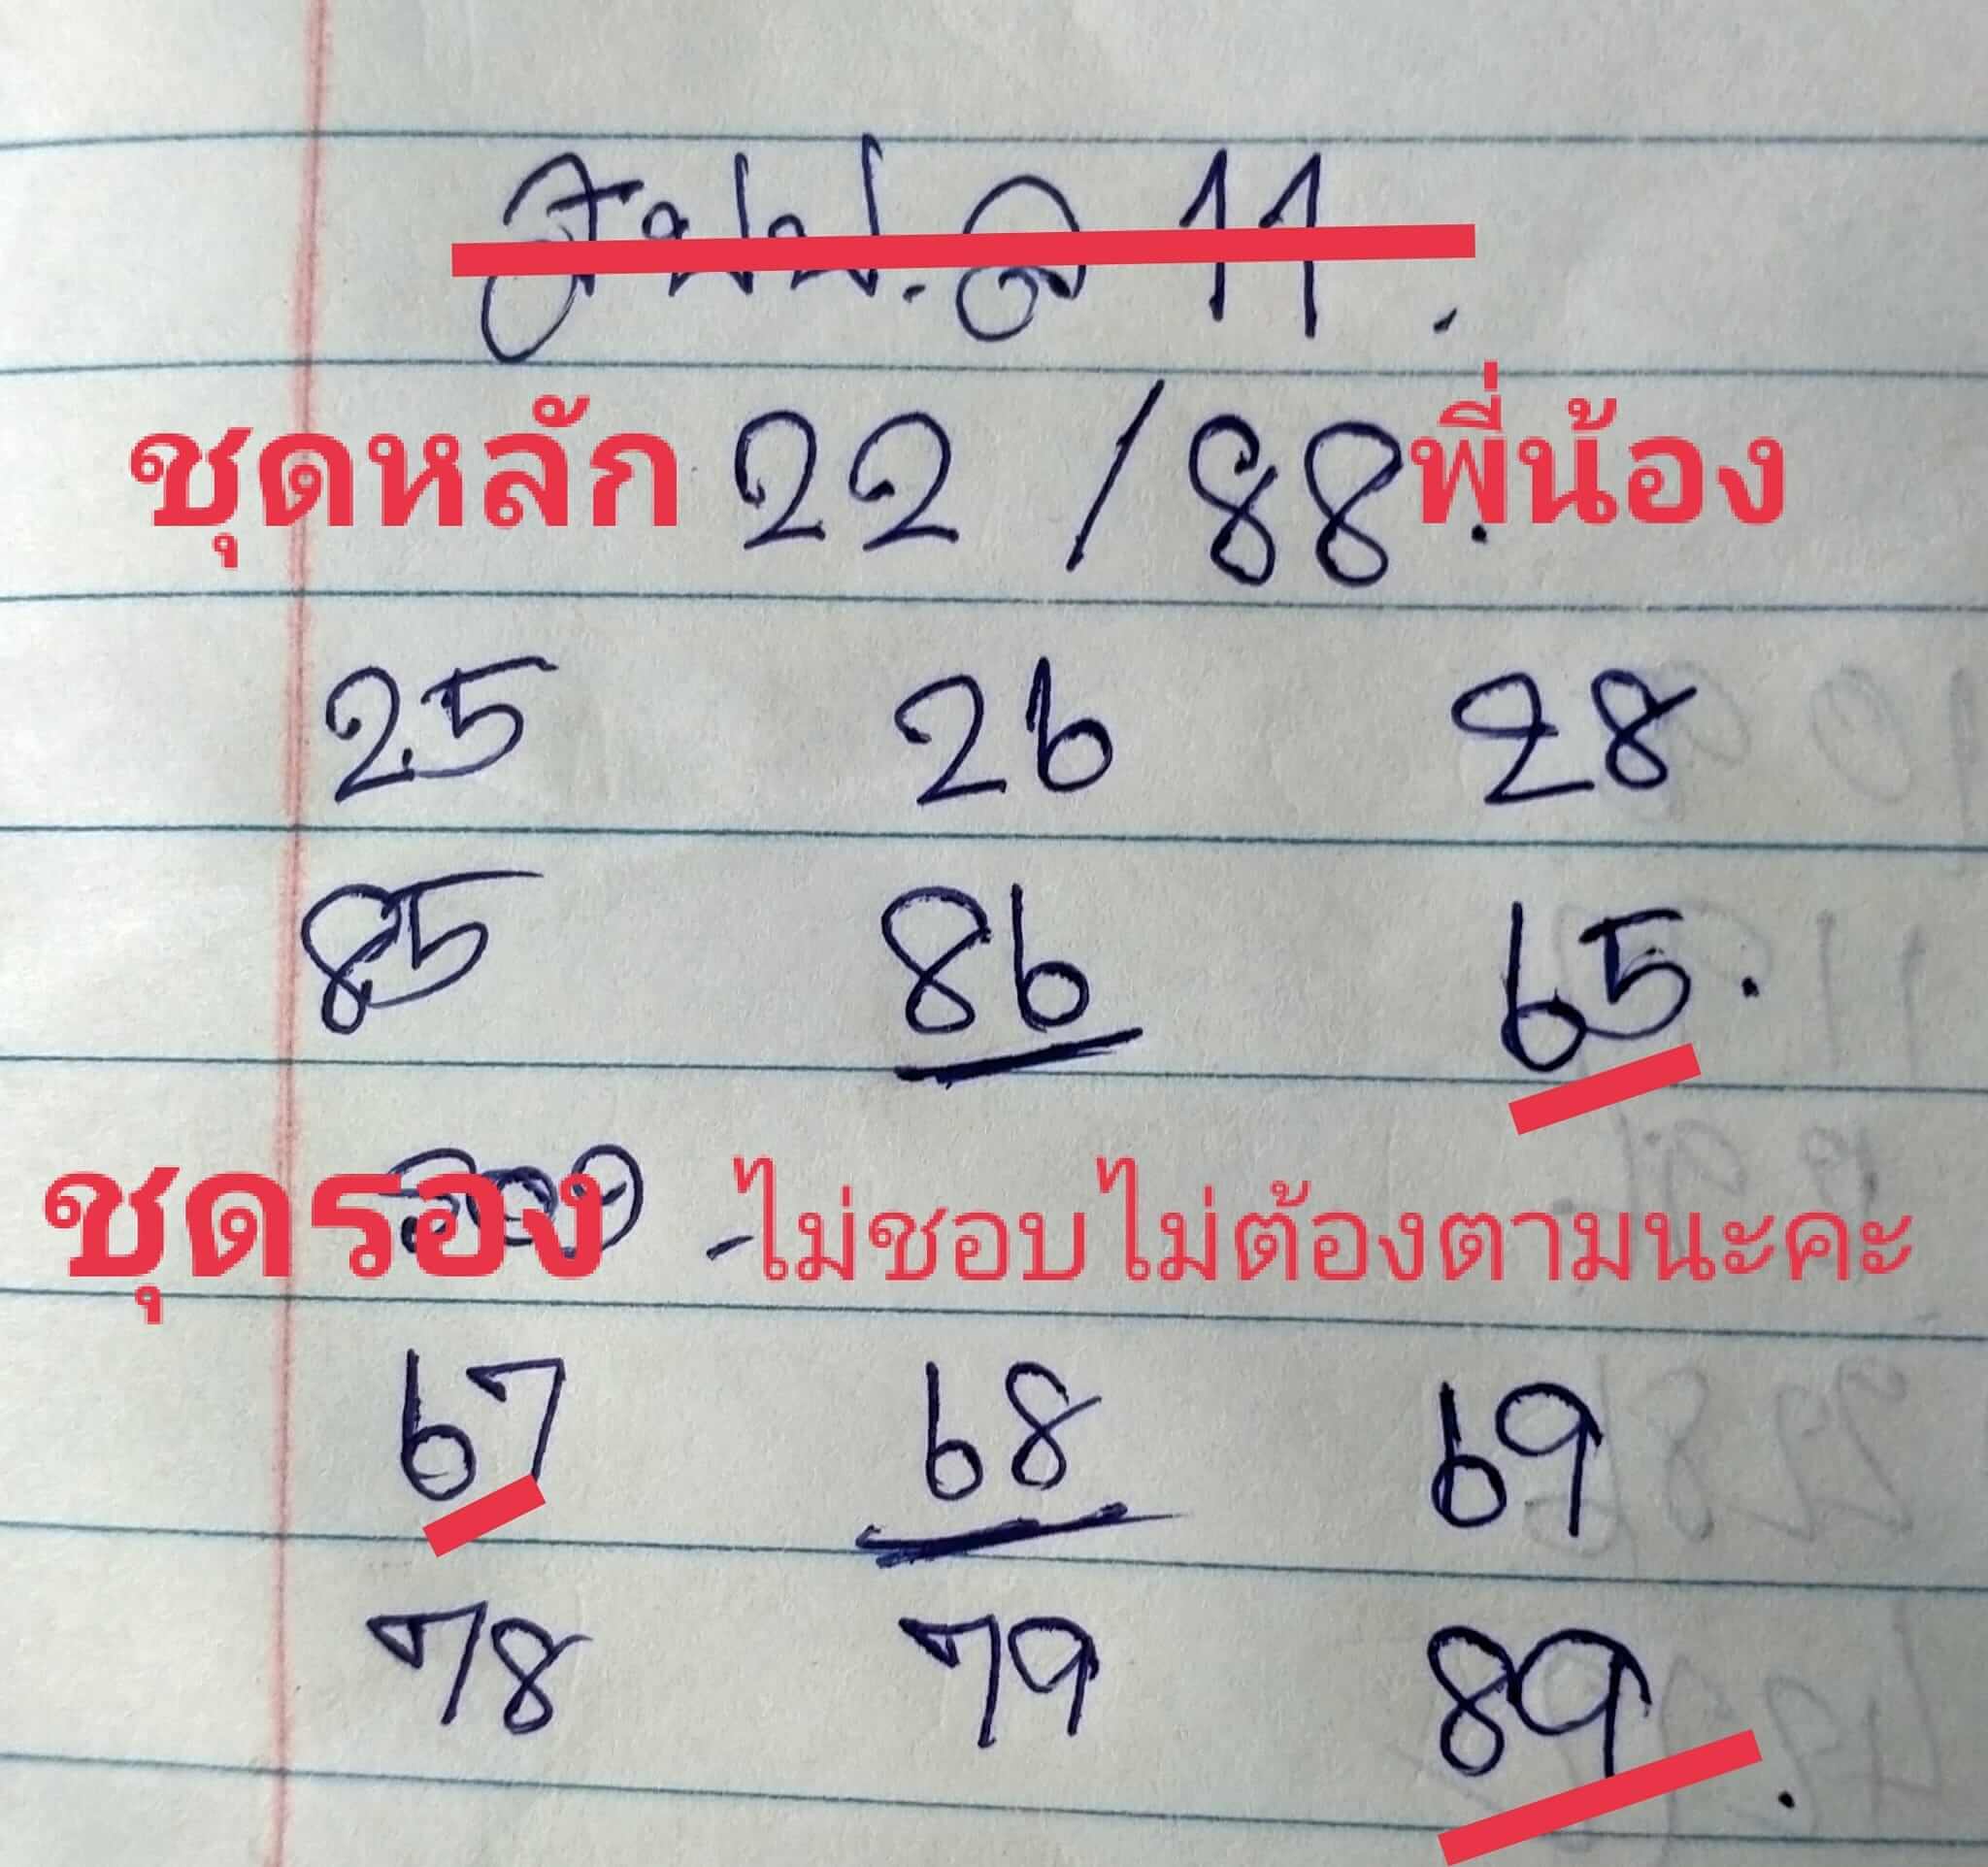 11.
ชุดหลัก 22 / 88. พี่น้อง
25 26 28
85 86 65.
ชุดรอง - ไม่ชอบไม่ต้องตามนะคะ
67 68 69
78 79 89.